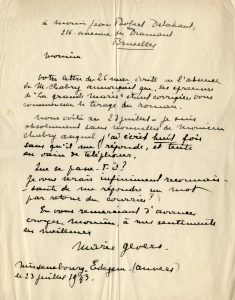 à monsieur Jean Robert Delahaut,
216 avenue du Diamant
Bruxelles
Monsieur
Votre lettre du 26 mai écrite en l'absence
de M. Chabry annonçait que, les épreuves
de "La grande marée" étant corrigées, vous
commenciez le tirage du roman.
Nous voici au 23 juillet - je suis
absolument sans nouvelles de monsieur
Chabry auquel j'ai écrit huit fois
sans qu'il me réponde, et tenté
en vain de téléphoner.
Que se passe-t-il?
Je vous serais infiniment reconnais-
sante de me répondre un mot
par retour du courrier!
En vous remerciant d'avance
croyez monsieur, à mes sentiments
les meilleurs
Marie Gevers.
Missembourg, Edegem (Anvers)
le 23 juillet 1943.